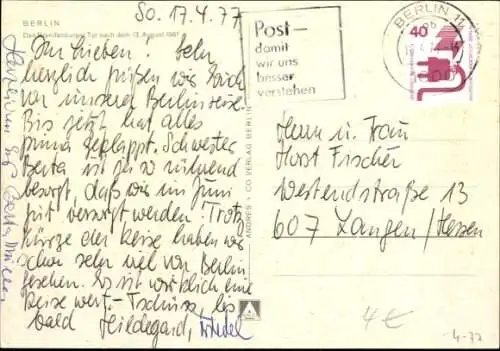 So. 17.4.77
BERLIN
Das Brandenburger Tor nach dem 13. August 1961
Ihr Lieben! Sehr
herzlich grüßen wir Euch
von unserer Berlinreise.
Bis jetzt hat alles
prima geklappt. Schwester
Berta ist ja so rührend
besorgt, daß wir im Juni
gut versorgt werden! Trotz
Kürze der Reise haben wir
schon sehr viel von Berlin
gesehen. Es ist wirklich eine
Reise wert. - Tschüss, bis
bald Hildegard, Friedel
Herzlichen Gruß
ANDRES + CO VERLAG BERLIN
Post -
damit
wir uns
besser
verstehen
BERLIN 11
40
Herrn u. Frau
Horst Fischer
Westendstraße 13
607 Langen/Hessen
4€
-4-77